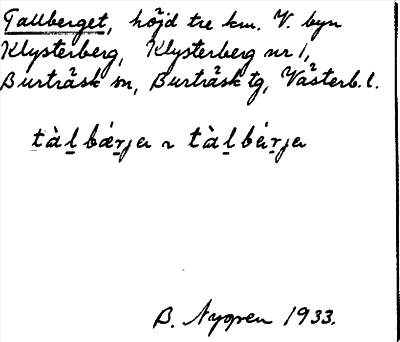 Tallberget, höjd tre km. V. byn
Klysterberg, Klysterberg nr 1,
Burträsk sn, Burträsk tg, Västerb. l.
tàl̲bǽr̲ja ~ tàl̲bár̲ja
B. Nygren 1933.